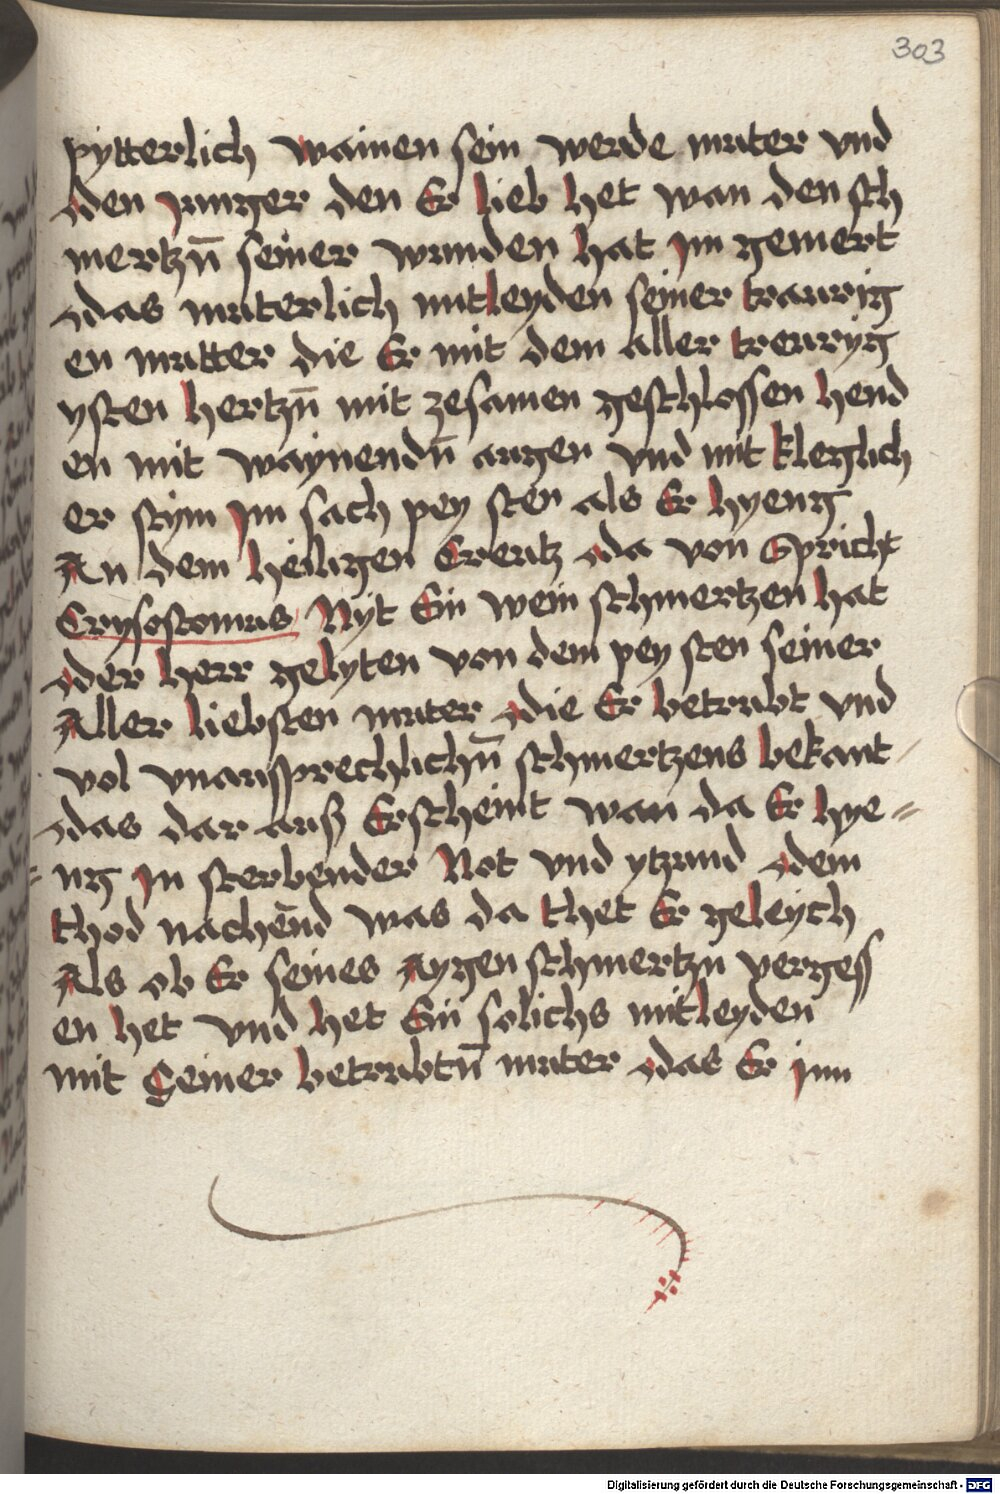 303
pytterlich wainen sein werde muter vnd
den Junger den Er lieb het wan den sch
mertzn̄ seiner wunden hat Im gemert
das muterlich mitleyden seiner traurig
en mutter die Er mit dem aller treuryg
ysten hertzn̄ mit zesamen geschlossen hend
en mit waynendn̄ augen vnd mit kleglich
er stym Im sach pey sten als Er hyeng
An dem heiligen Creutz da von Spricht
Crysostomus Nyt Ein wein schmertzen hat
der herr gelyten von dem pey sten seiner
Aller liebsten muter die Er betrubt vnd
vol vnaussprechlichn̄ schmertzens bekant
das dar auß Erscheint wan da Er hye=
=ng In sterbender Not vnd ytzund dem
thod nachend was da thet Er geleych
Als ob Er seines Aygen schmertzn vergess
en het vnd het Ein solichs mitleyden
mit Seiner betrubtn̄ muter das Er Im
Digitalisierung gefördert durch die Deutsche Forschungsgemeinschaft - DFG